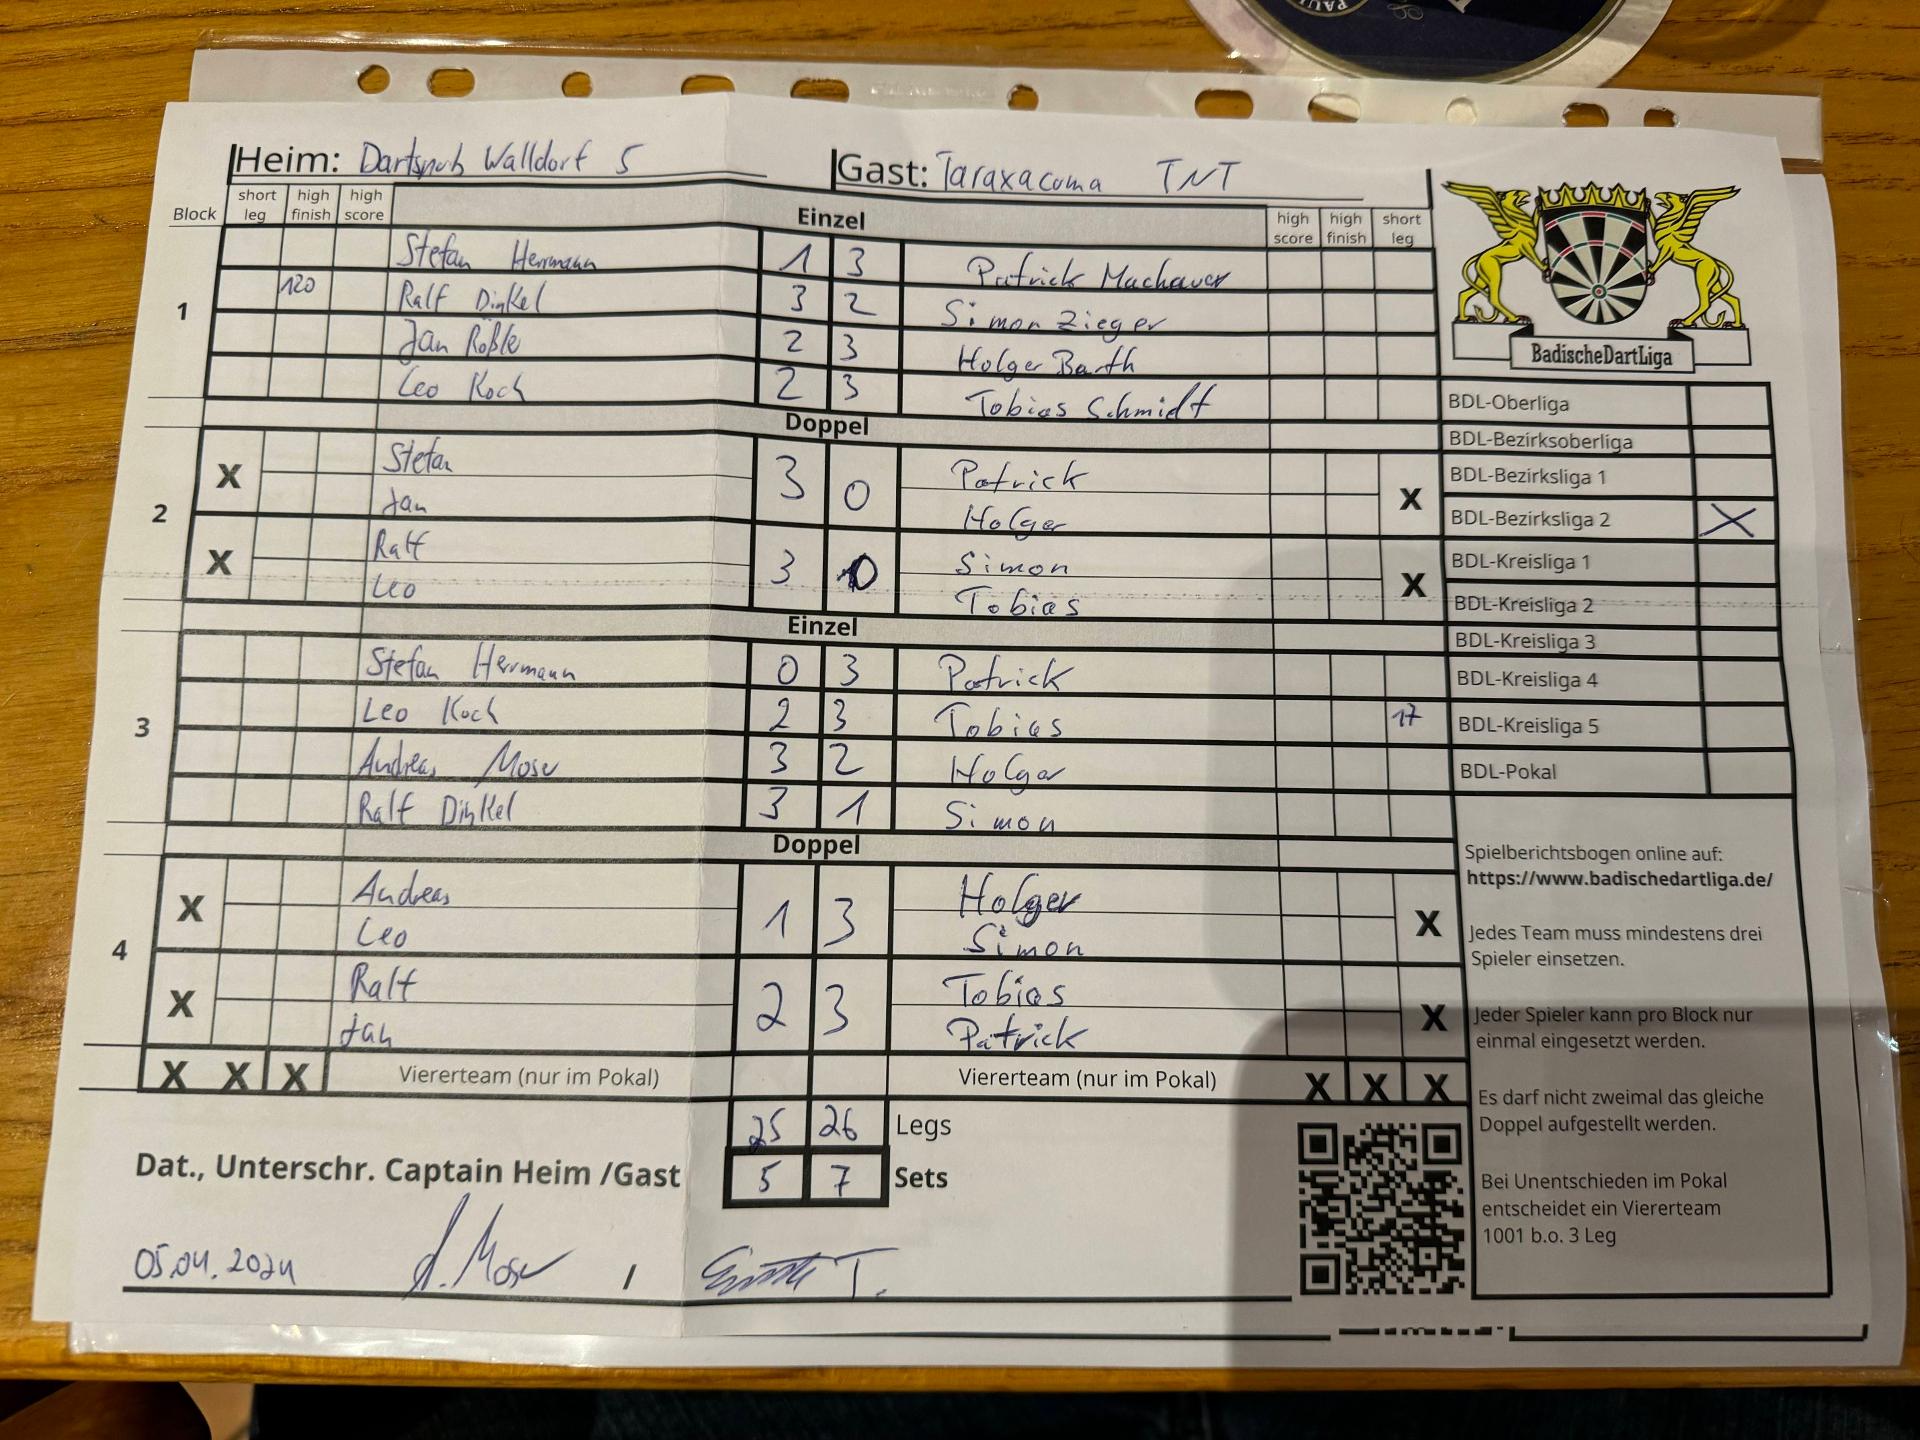 Heim: Dartspub Walldorf 5 Gast: Taraxacuma TNT
Block short leg high finish high score Einzel high score high finish short leg
Stefan Herrmann 1 3 Patrick Machauer
120 Ralf Dinkel 3 2 Simon Zieger
1
Jan Rößle 2 3 Holger Barth
Leo Koch 2 3 Tobias Schmidt
Doppel
X Stefan 3 0 Patrick X
Jan Holger
2
X Ralf 3 0 Simon X
Leo Tobias
Einzel
Stefan Herrmann 0 3 Patrick
Leo Koch 2 3 Tobias 17
3
Andreas Moser 3 2 Holger
Ralf Dinkel 3 1 Simon
Doppel
X Andreas 1 3 Holger X
Leo Simon
4
X Ralf 2 3 Tobias X
Jan Patrick
X X X Viererteam (nur im Pokal) Viererteam (nur im Pokal) X X X
25 26 Legs
5 7 Sets
Dat., Unterschr. Captain Heim /Gast
05.04.2024 A. Moser / T.
BadischeDartLiga
BDL-Oberliga
BDL-Bezirksoberliga
BDL-Bezirksliga 1
BDL-Bezirksliga 2 X
BDL-Kreisliga 1
BDL-Kreisliga 2
BDL-Kreisliga 3
BDL-Kreisliga 4
BDL-Kreisliga 5
BDL-Pokal
Spielberichtsbogen online auf:
https://www.badischedartliga.de/
Jedes Team muss mindestens drei
Spieler einsetzen.
Jeder Spieler kann pro Block nur
einmal eingesetzt werden.
Es darf nicht zweimal das gleiche
Doppel aufgestellt werden.
Bei Unentschieden im Pokal
entscheidet ein Viererteam
1001 b.o. 3 Leg